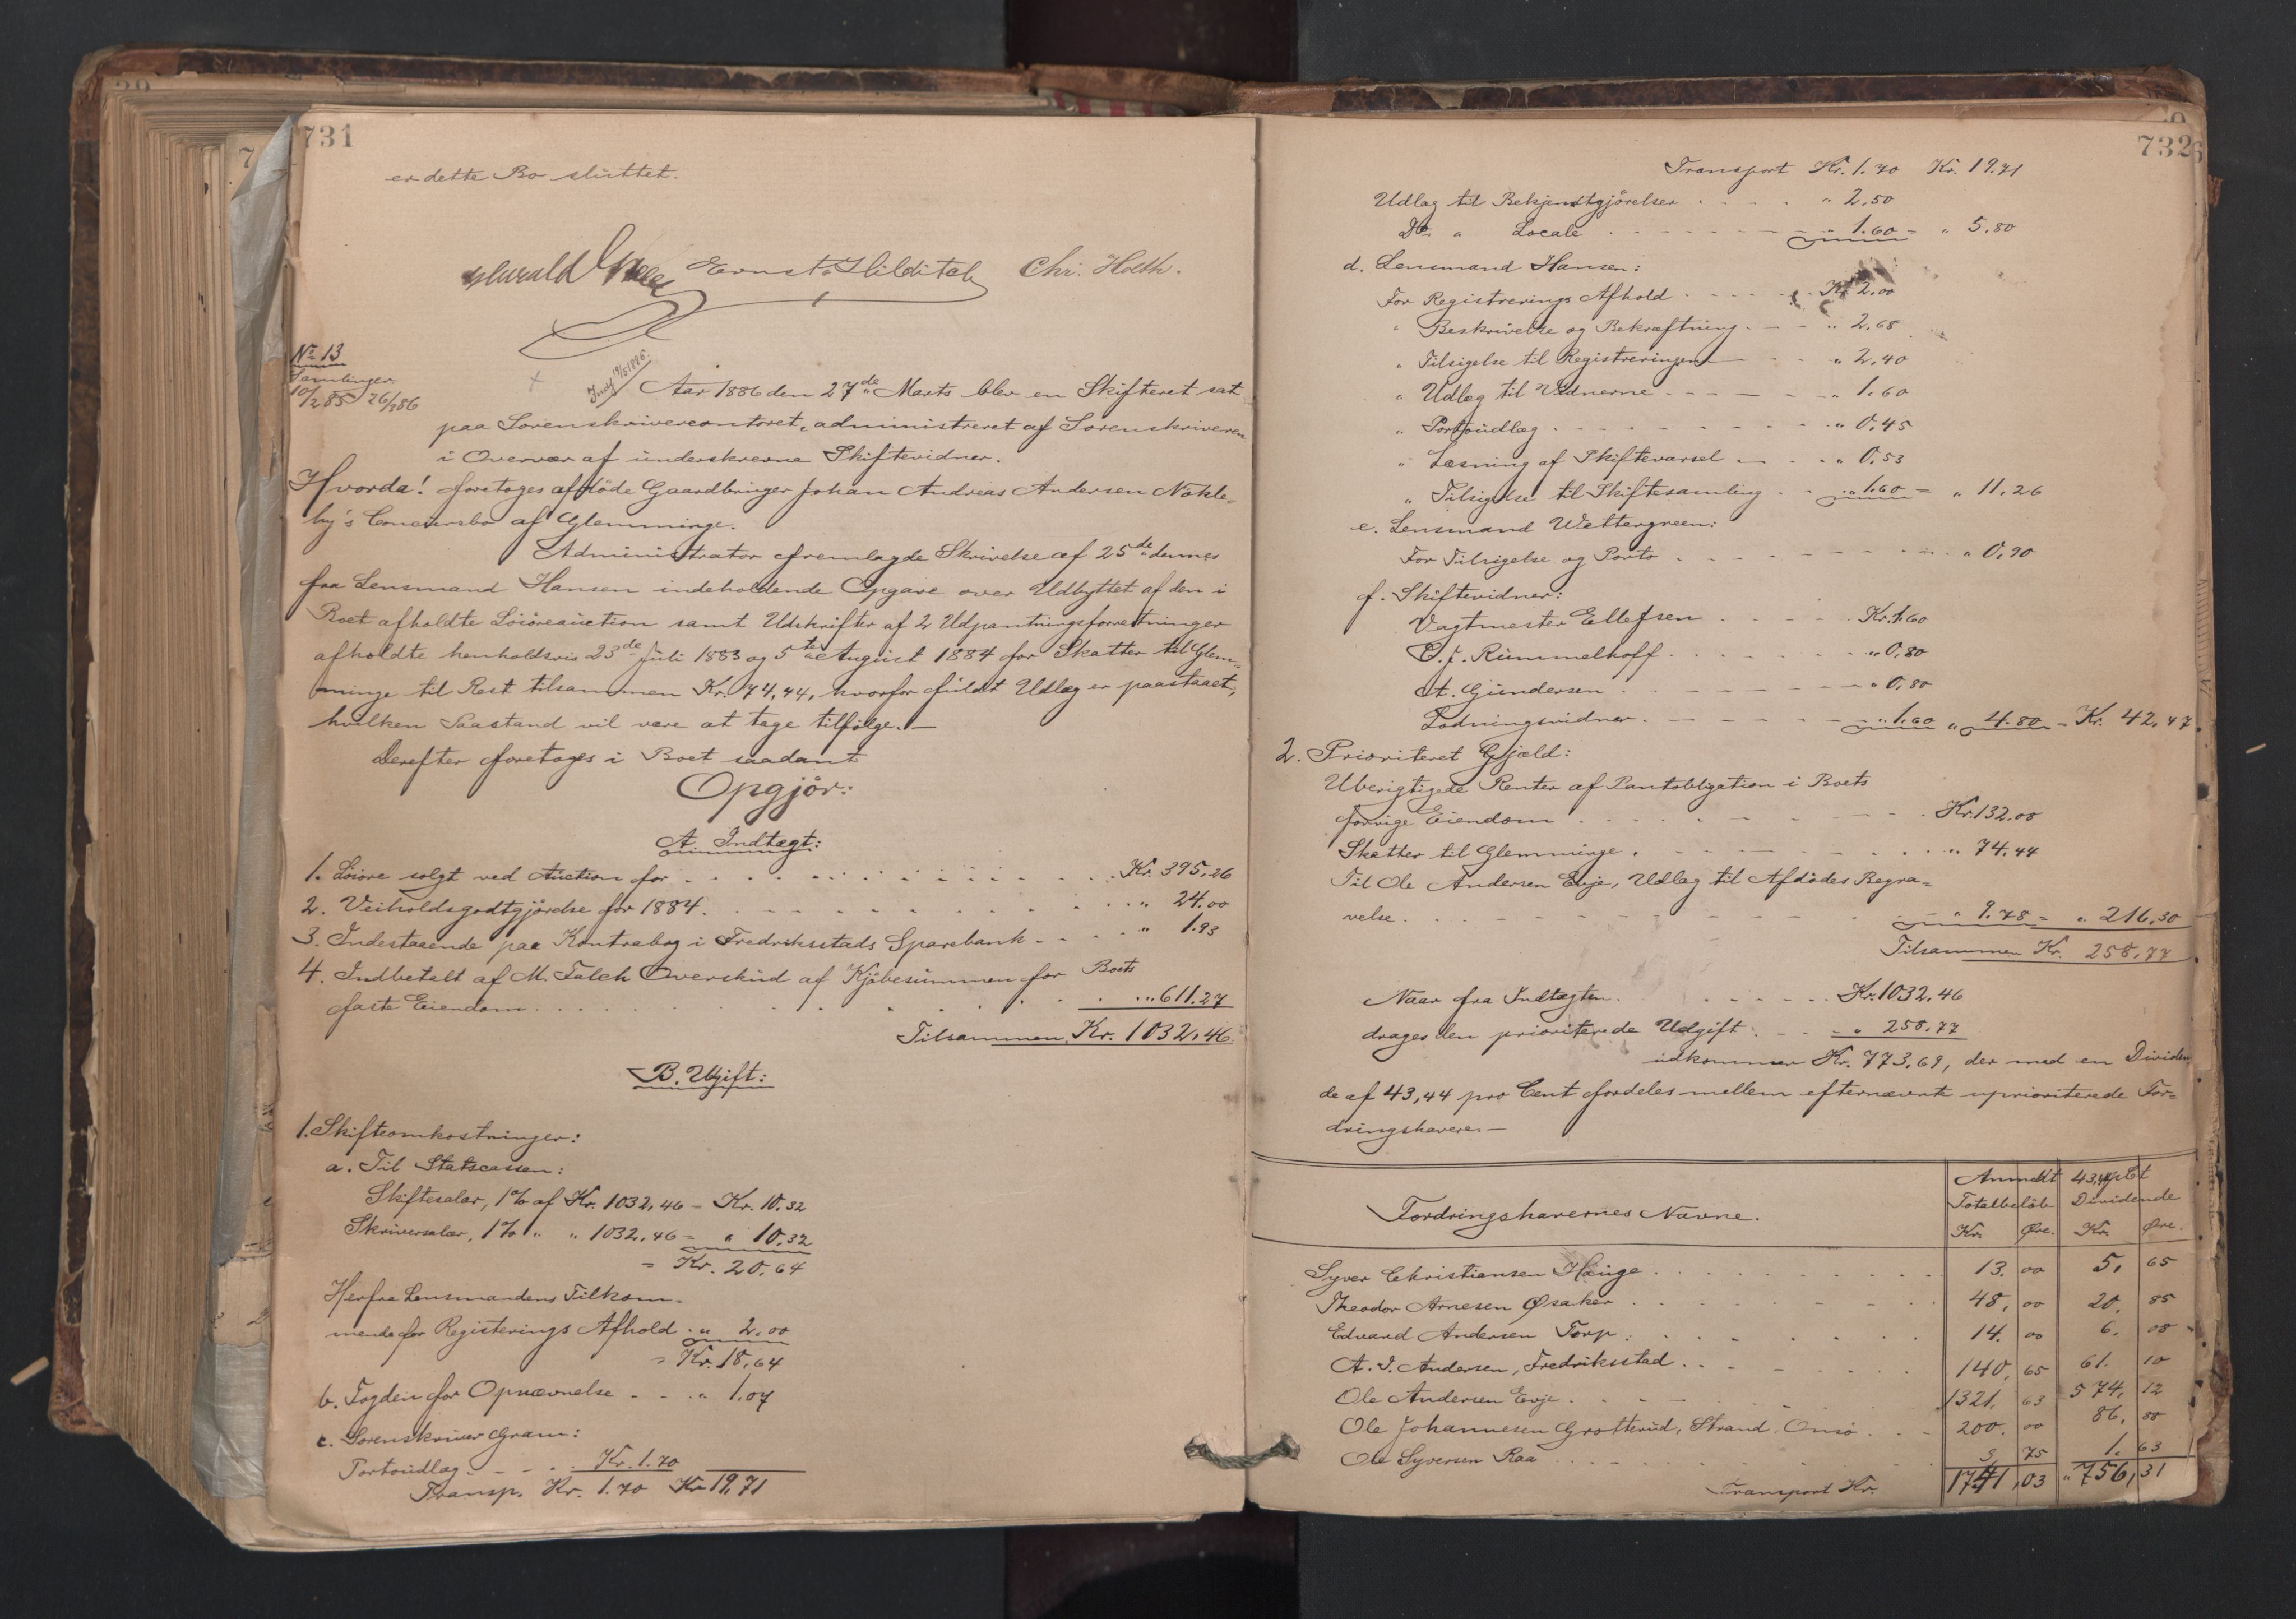 731
er dette Bo sluttet.
Ernst Hilditch Chr. Holth.
No 13
Samlinger
10/2 85 26/3 86
19/5 1886.
Aar 1886 den 27de Marts blev en Skifteret sat
paa Sorenskrivercontoret, administreret af Sorenskriveren
i Overvær af underskrevne Skiftevidner.
Hvorda! foretoges afdöde Gaardbruger Johan Andreas Andersen Nökle=
by's Concursbo af Glemminge.
Administrator fremlagde Skrivelse af 25de dennes
fra Lensmand Hansen indeholdende Opgave over Udbyttet af den i
Boet afholdte Lösöreauction samt Udskrifter af 2 Udpantningsforretninger
afholdte henholdsvis 23de Juli 1883 og 5te August 1884 for Skatter til Glem=
minge til Rest tilsammen Kr. 74,44, hvorfor fuldt Udlæg er paastaaet,
hvilken Paastand vil være at tage tilfölge.—
Derefter foretoges i Boet saadant
Opgjör:
A. Indtægt:
1. Lösöre solgt ved Auction for . . . Kr. 395,26
2. Veiholdsgodtgjörelse for 1884. . . . " 24.00
3. Indestaaende paa Kontrabog i Fredriksstads Sparebank - . . " 1.93
4. Indbetalt af M. Falch Overskud af Kjöbesummen for Boets
faste Eiendom . . . " 611.27
Tilsammen Kr. 1032,46.
B. Ugift:
1. Skifteomkostninger:
a. Til Statscassen:
Skiftesalær, 1% af Kr. 1032,46 = Kr. 10.32
Skriversalær, 1% " " 1032,46 = " 10.32
= Kr. 20,64
Herfra Lensmandens Tilkom=
mende for Registerings Afhold . " 2,00
= Kr. 18,64
b. Fogden for Opnævnelse - - . " 1.07
c. Sorenskriver Gram:
Portoudlæg . - - . Kr. 1.70
Transp. Kr. 1.70 Kr 19,71
732
Transport Kr. 1.70 Kr. 19.71
Udlæg til Bekjendtgjörelser . . . " 2,50
Do " Locale . . . " 1.60 = " 5.80
d. Lensmand Hansen:
For Registrerings Afhold . . . Kr 2.00
" Beskrivelse og Bekræftning . . " 2,68
" Tilsigelse til Registreringen . . " 2,40
" Udlæg til Vidnerne . . . " 1.60
" Portoudlæg . . . " 0.45
" Læsning af Skiftevarsel . . " 0.53
" Tilsigelse til Skiftesamling . . " 1.60 = " 11,26
e. Lensmand Wettergreen:
For Tilsigelse og Porto . . . " 0,90
f. Skiftevidner:
Vagtmester Ellefsen . . . Kr. 1.60
C. J. Rummelhoff . . . " 0,80
A. Gundersen . . . " 0,80
Lodningsvidner . . . " 1.60 " 4.80 = Kr. 42,47
2. Prioriteret Gjæld:
Uberigtigede Renter af Pantobligation i Boets
forrige Eiendom . . . Kr. 132.00
Skatter til Glemminge . . . " 74,44
Til Ole Andersen Evje, Udlæg til Afdödes Begra=
velse . . . " 9.78 = " 216,30
Tilsammen Kr. 258,77
Naar fra Indtægten . . . Kr. 1032,46
drages den prioriterede Udgift . . " 258,77
udkommer Kr. 773,69, der med en Dividen=
de af 43,44 pro Cent fordeles mellem efternævnte uprioriterede For=
dringshavere.—
Fordringshavernes Navne. Anmeldt Totalbelöb Kr. Øre. 43,44 pCt Dividende Kr. Øre.
Syver Christiansen Hauge . . . 13. 00 5, 65
Theodor Arnesen Øsaker . . . 48, 00 20, 85
Edvard Andersen Torp . . . 14. 00 6. 08
A. J. Andersen, Fredriksstad . . . 140, 65 61. 10
Ole Andersen Evje . . . 1321, 63 574, 12
Ole Johannesen Grötterud, Strand Onsö . . . 200. 00 86, 88
Ole Syversen Raa . . . 3, 75 1. 63
Transport Kr. 1741,03 " 756,31